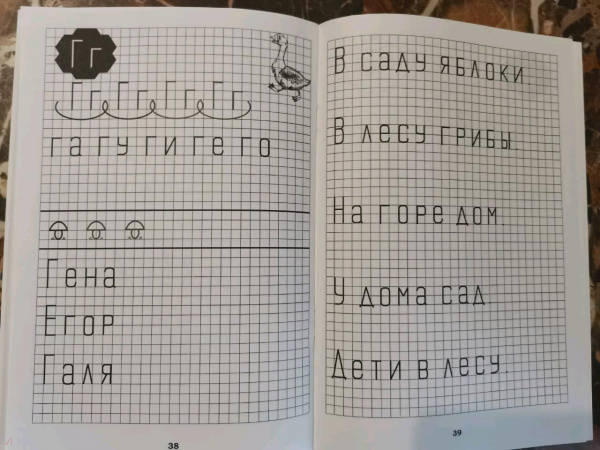 Гг
Гг Гг Гг Гг
га гу ги ге го
Гена
Егор
Галя
38
В саду яблоки
В лесу грибы.
На горе дом.
У дома сад.
Дети в лесу.
39